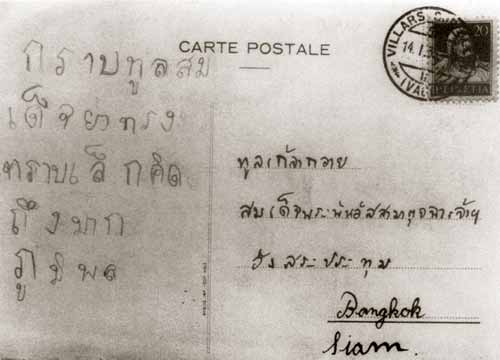 CARTE POSTALE
VILLARS
14.I.
20
HELVETIA
กราบทูลสม
เด็จย่าทรง
ทราบเล็กคิด
ถึงมาก
ภูมิพล
ทูลเกล้าถวาย
สมเด็จพระพันวัสสามาตุจฉาเจ้าฯ
วังสระประทุม
Bangkok
Siam.